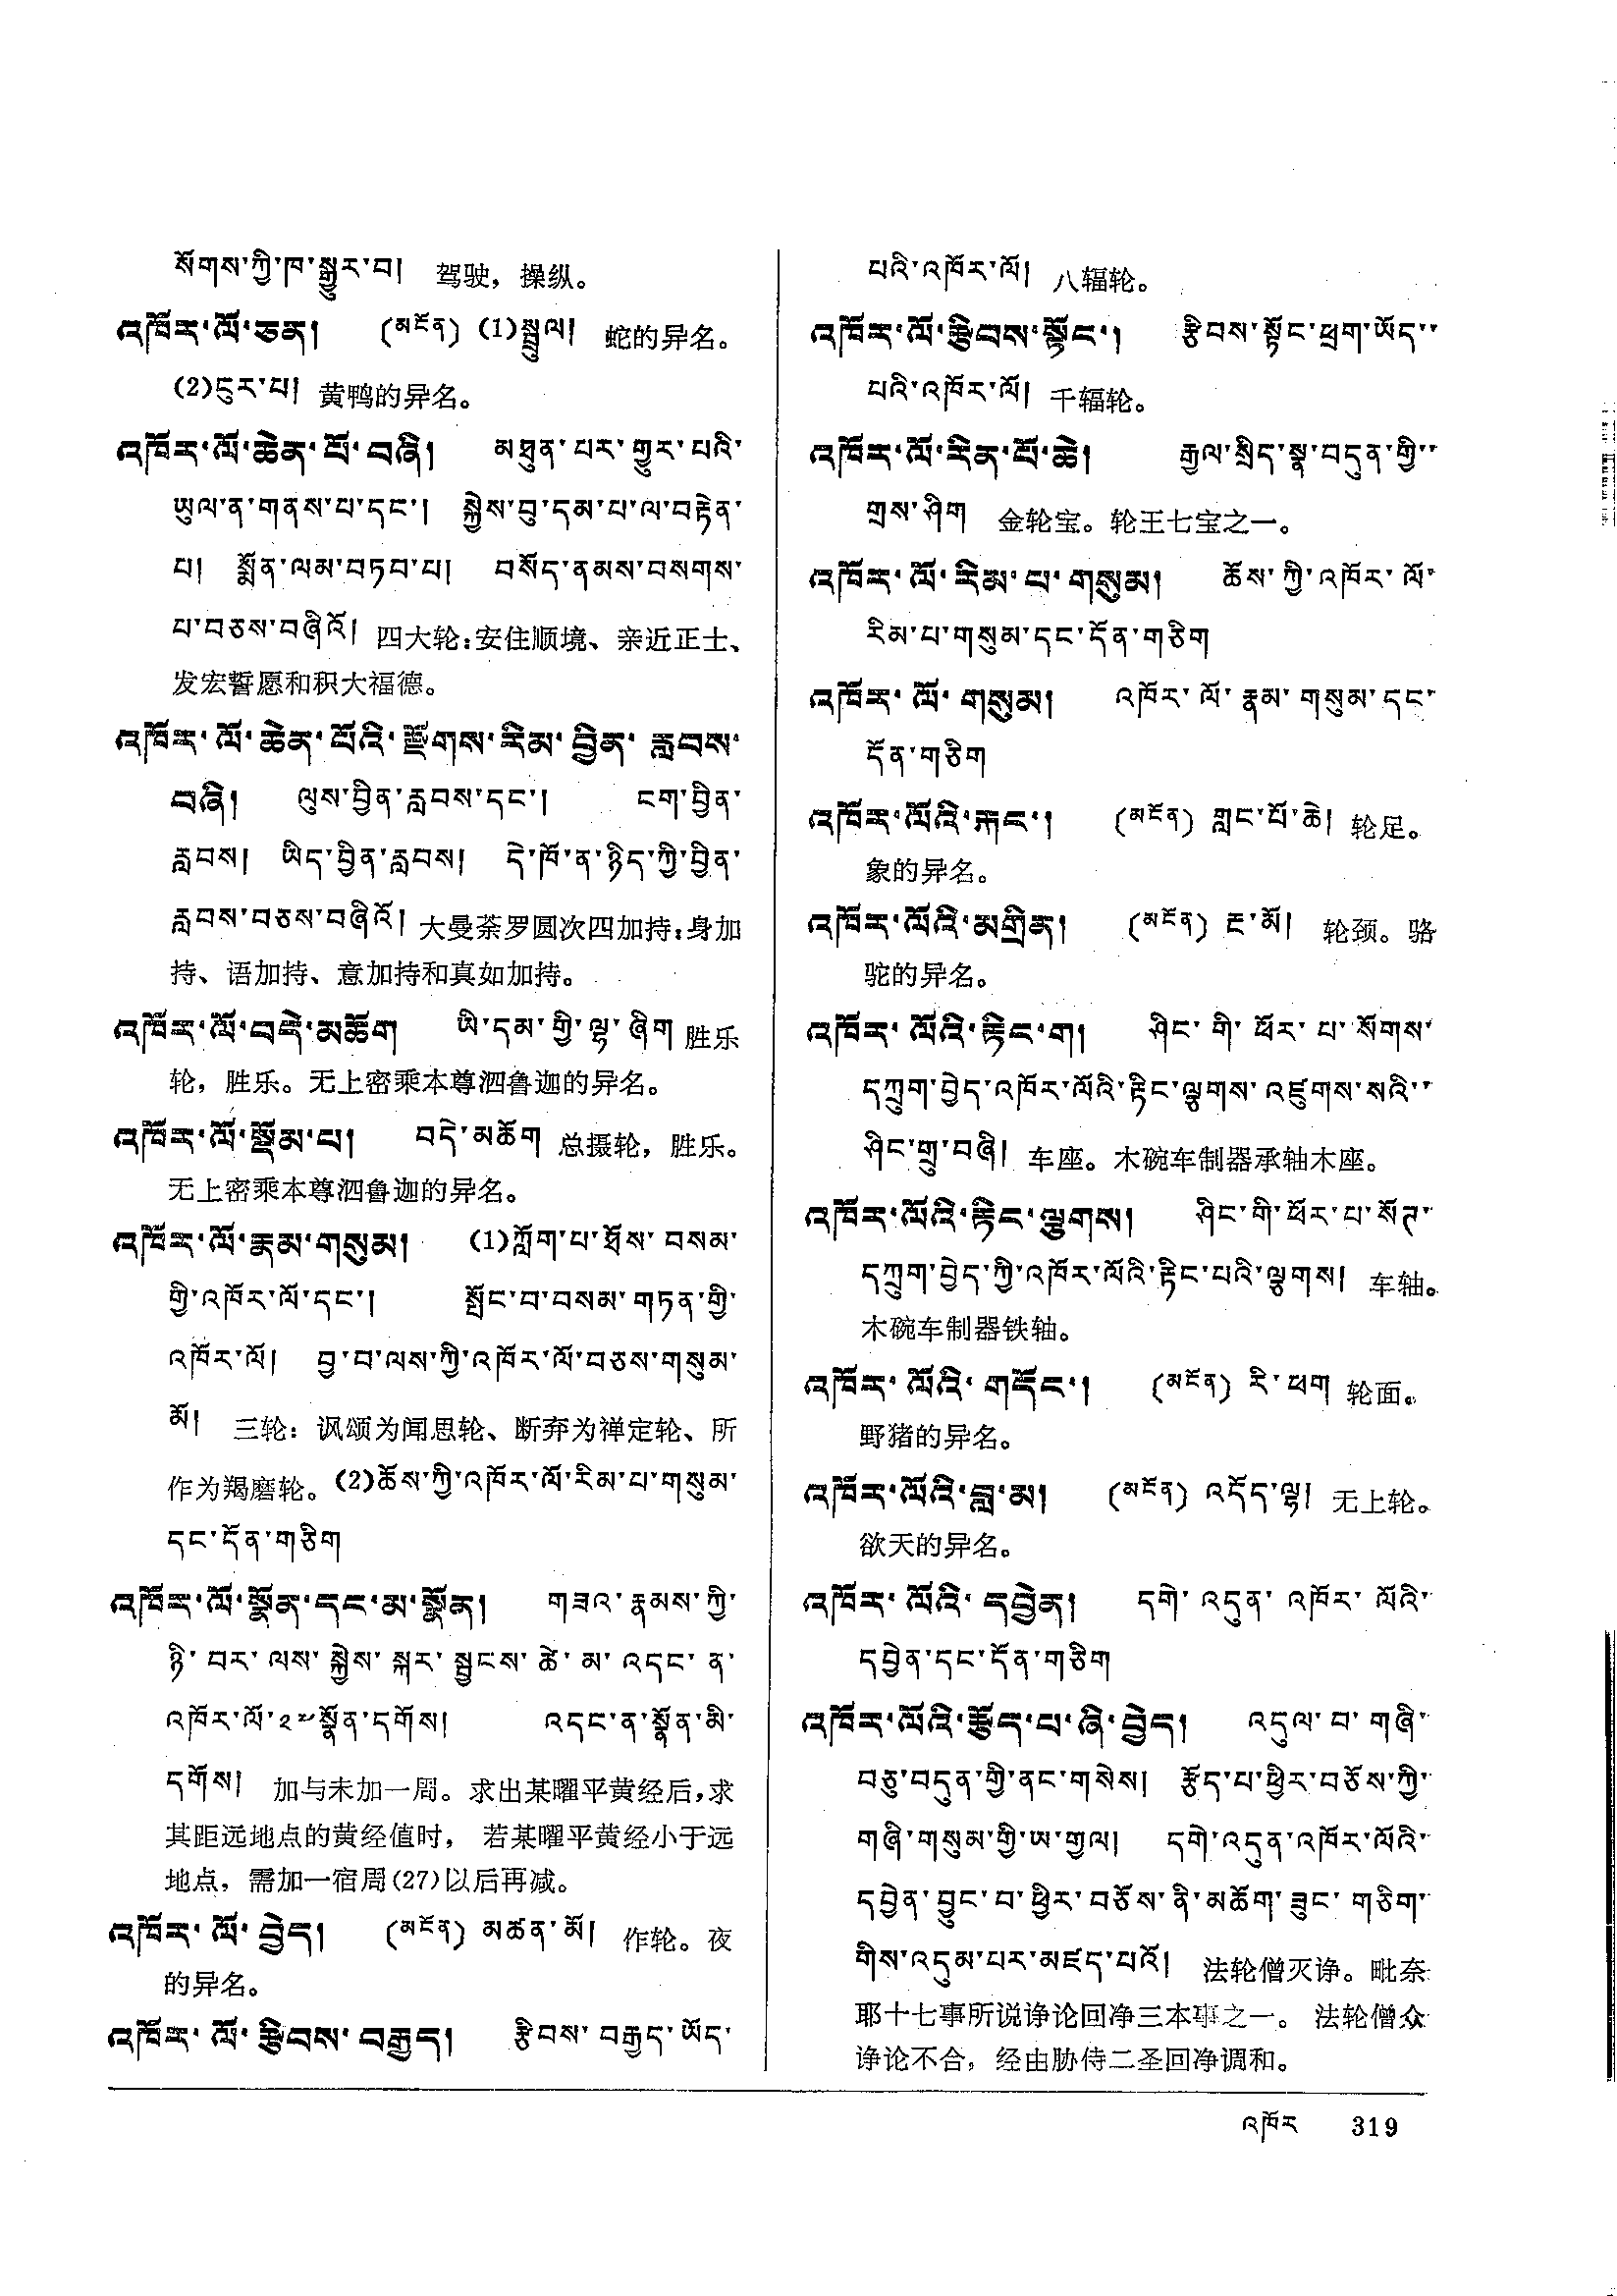 སོགས་ཀྱི་ཁ་སྒྱུར་བ། 驾驶，操纵。
འཁོར་ལོ་ཅན། (མངོན) (1)སྦྲུལ། 蛇的异名。
(2)ངུར་པ། 黄鸭的异名。
འཁོར་ལོ་ཆེན་པོ་བཞི། མཐུན་པར་གྱུར་པའི་
ཡུལ་ན་གནས་པ་དང་། སྐྱེས་བུ་དམ་པ་ལ་བརྟེན་
པ། སྨོན་ལམ་བཏབ་པ། བསོད་ནམས་བསགས་
པ་བཅས་བཞིའོ། 四大轮：安住顺境、亲近正士、
发宏誓愿和积大福德。
འཁོར་ལོ་ཆེན་པོའི་རྫོགས་རིམ་བྱིན་རླབས་
བཞི། ལུས་བྱིན་རླབས་དང་། ངག་བྱིན་
རླབས། ཡིད་བྱིན་རླབས། དེ་ཁོ་ན་ཉིད་ཀྱི་བྱིན་
རླབས་བཅས་བཞིའོ། 大曼荼罗圆次四加持：身加
持、语加持、意加持和真如加持。
འཁོར་ལོ་བདེ་མཆོག ཡི་དམ་གྱི་ལྷ་ཞིག 胜乐
轮，胜乐。无上密乘本尊泗鲁迦的异名。
འཁོར་ལོ་སྡོམ་པ། བདེ་མཆོག 总摄轮，胜乐。
无上密乘本尊泗鲁迦的异名。
འཁོར་ལོ་རྣམ་གསུམ། (1)ཀློག་པ་ཐོས་བསམ་
གྱི་འཁོར་ལོ་དང་། སྤོང་བ་བསམ་གཏན་གྱི་
འཁོར་ལོ། བྱ་བ་ལས་ཀྱི་འཁོར་ལོ་བཅས་གསུམ་
མོ། 三轮：讽颂为闻思轮、断弃为禅定轮、所
作为羯磨轮。(2)ཆོས་ཀྱི་འཁོར་ལོ་རིམ་པ་གསུམ་
དང་དོན་གཅིག
འཁོར་ལོ་སྣོན་དང་མ་སྣོན། གཟའ་རྣམས་ཀྱི་
ཉི་བར་ལས་སྐྱེས་སྐར་སྦྱངས་ཚེ་མ་འདང་ན་
འཁོར་ལོ་༢༧སྣོན་དགོས། འདང་ན་སྣོན་མི་
དགོས། 加与未加一周。求出某曜平黄经后，求
其距远地点的黄经值时，若某曜平黄经小于远
地点，需加一宿周(27)以后再减。
འཁོར་ལོ་བྱེད། (མངོན) མཚན་མོ། 作轮。夜
的异名。
འཁོར་ལོ་རྩིབས་བརྒྱད། རྩིབས་བརྒྱད་ཡོད་
པའི་འཁོར་ལོ། 八辐轮。
འཁོར་ལོ་རྩིབས་སྟོང་། རྩིབས་སྟོང་ཕྲག་ཡོད་
པའི་འཁོར་ལོ། 千辐轮。
འཁོར་ལོ་རིན་པོ་ཆེ། རྒྱལ་སྲིད་སྣ་བདུན་གྱི་
གྲས་ཤིག 金轮宝。轮王七宝之一。
འཁོར་ལོ་རིམ་པ་གསུམ། ཆོས་ཀྱི་འཁོར་ལོ་
རིམ་པ་གསུམ་དང་དོན་གཅིག
འཁོར་ལོ་གསུམ། འཁོར་ལོ་རྣམ་གསུམ་དང་
དོན་གཅིག
འཁོར་ལོའི་རྐང་། (མངོན) གླང་པོ་ཆེ། 轮足。
象的异名。
འཁོར་ལོའི་མགྲིན། (མངོན) རྔ་མོ། 轮颈。骆
驼的异名。
འཁོར་ལོའི་རྟིང་ག། ཤིང་གི་ཕོར་པ་སོགས་
དཀྲུག་བྱེད་འཁོར་ལོའི་རྟིང་ལྕགས་འཛུགས་སའི་
ཤིང་གྲུ་བཞི། 车座。木碗车制器承轴木座。
འཁོར་ལོའི་རྟིང་ལྕགས། ཤིང་གི་ཕོར་པ་སོཊ་
དཀྲུག་བྱེད་ཀྱི་འཁོར་ལོའི་རྟིང་པའི་ལྕགས། 车轴。
木碗车制器铁轴。
འཁོར་ལོའི་གདོང་། (མངོན) རི་ཕག 轮面。
野猪的异名。
འཁོར་ལོའི་བླ་མ། (མངོན) འདོད་ལྷ། 无上轮。
欲天的异名。
འཁོར་ལོའི་དབྱེན། དགེ་འདུན་འཁོར་ལོའི་
དབྱེན་དང་དོན་གཅིག
འཁོར་ལོའི་རྩོད་པ་ཞི་བྱེད། འདུལ་བ་གཞི་
བཅུ་བདུན་གྱི་ནང་གསེས། རྩོད་པ་ཕྱིར་བཅོས་ཀྱི་
གཞི་གསུམ་གྱི་ཨ་གྱལ། དགེ་འདུན་འཁོར་ལོའི་
དབྱེན་བྱུང་བ་ཕྱིར་བཅོས་ནི་མཆོག་ཟུང་གཅིག་
གིས་འདུམ་པར་མཛད་པའོ། 法轮僧灭诤。毗奈
耶十七事所说诤论回净三本事之一。法轮僧众
诤论不合，经由胁侍二圣回净调和。
འཁོར 319